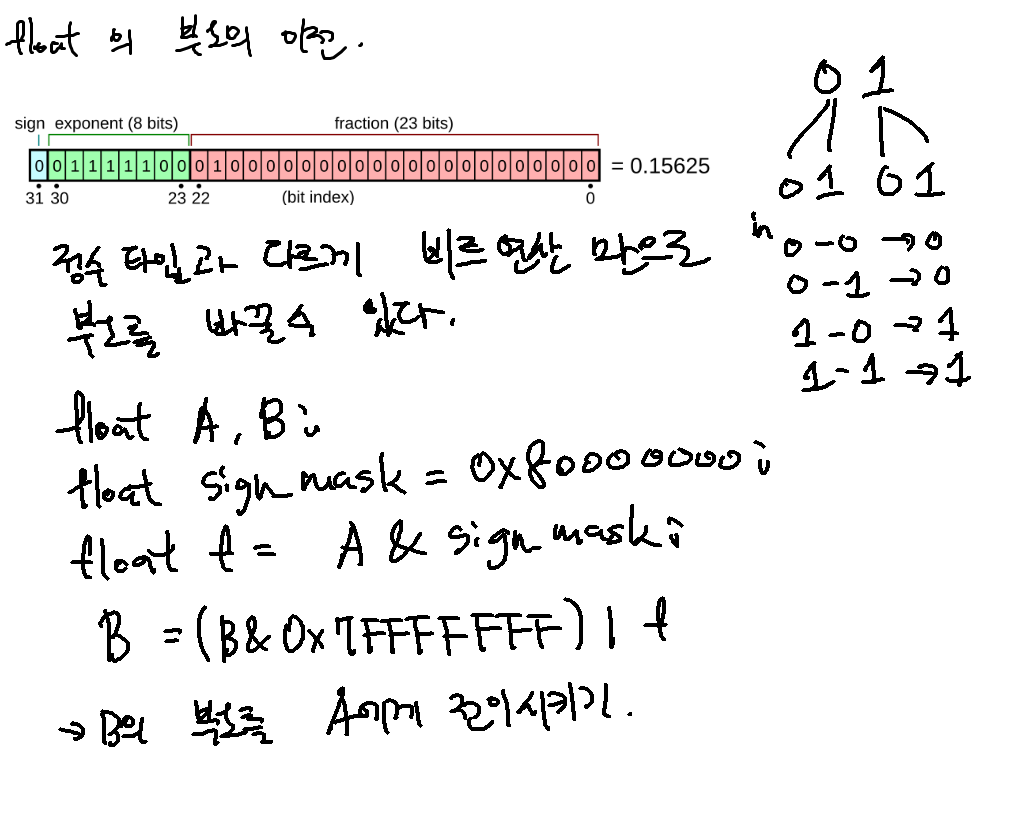 float 의 부호의 이전.
sign exponent (8 bits) fraction (23 bits)
0 0 1 1 1 1 1 0 0 0 1 0 0 0 0 0 0 0 0 0 0 0 0 0 0 0 0 0 0 0 0 0 = 0.15625
31 30 23 22 (bit index) 0
0 1
0 1 0 1
in 0 - 0 → 0
0 - 1 → 0
1 - 0 → 1
1 - 1 → 1
정수 타입과 다르게 비트 연산 만으로
부호를 바꿀 수 있다.
float A, B;
float sign mask = 0x80000000;
float t = A & sign mask;
B = (B & 0x7FFFFFFF) | t
→ B의 부호를 A에게 전이시키기.